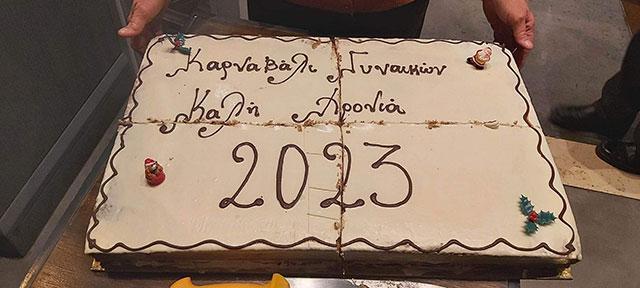 Καρναβάλι Γυναικών
Καλή Χρονιά
2023